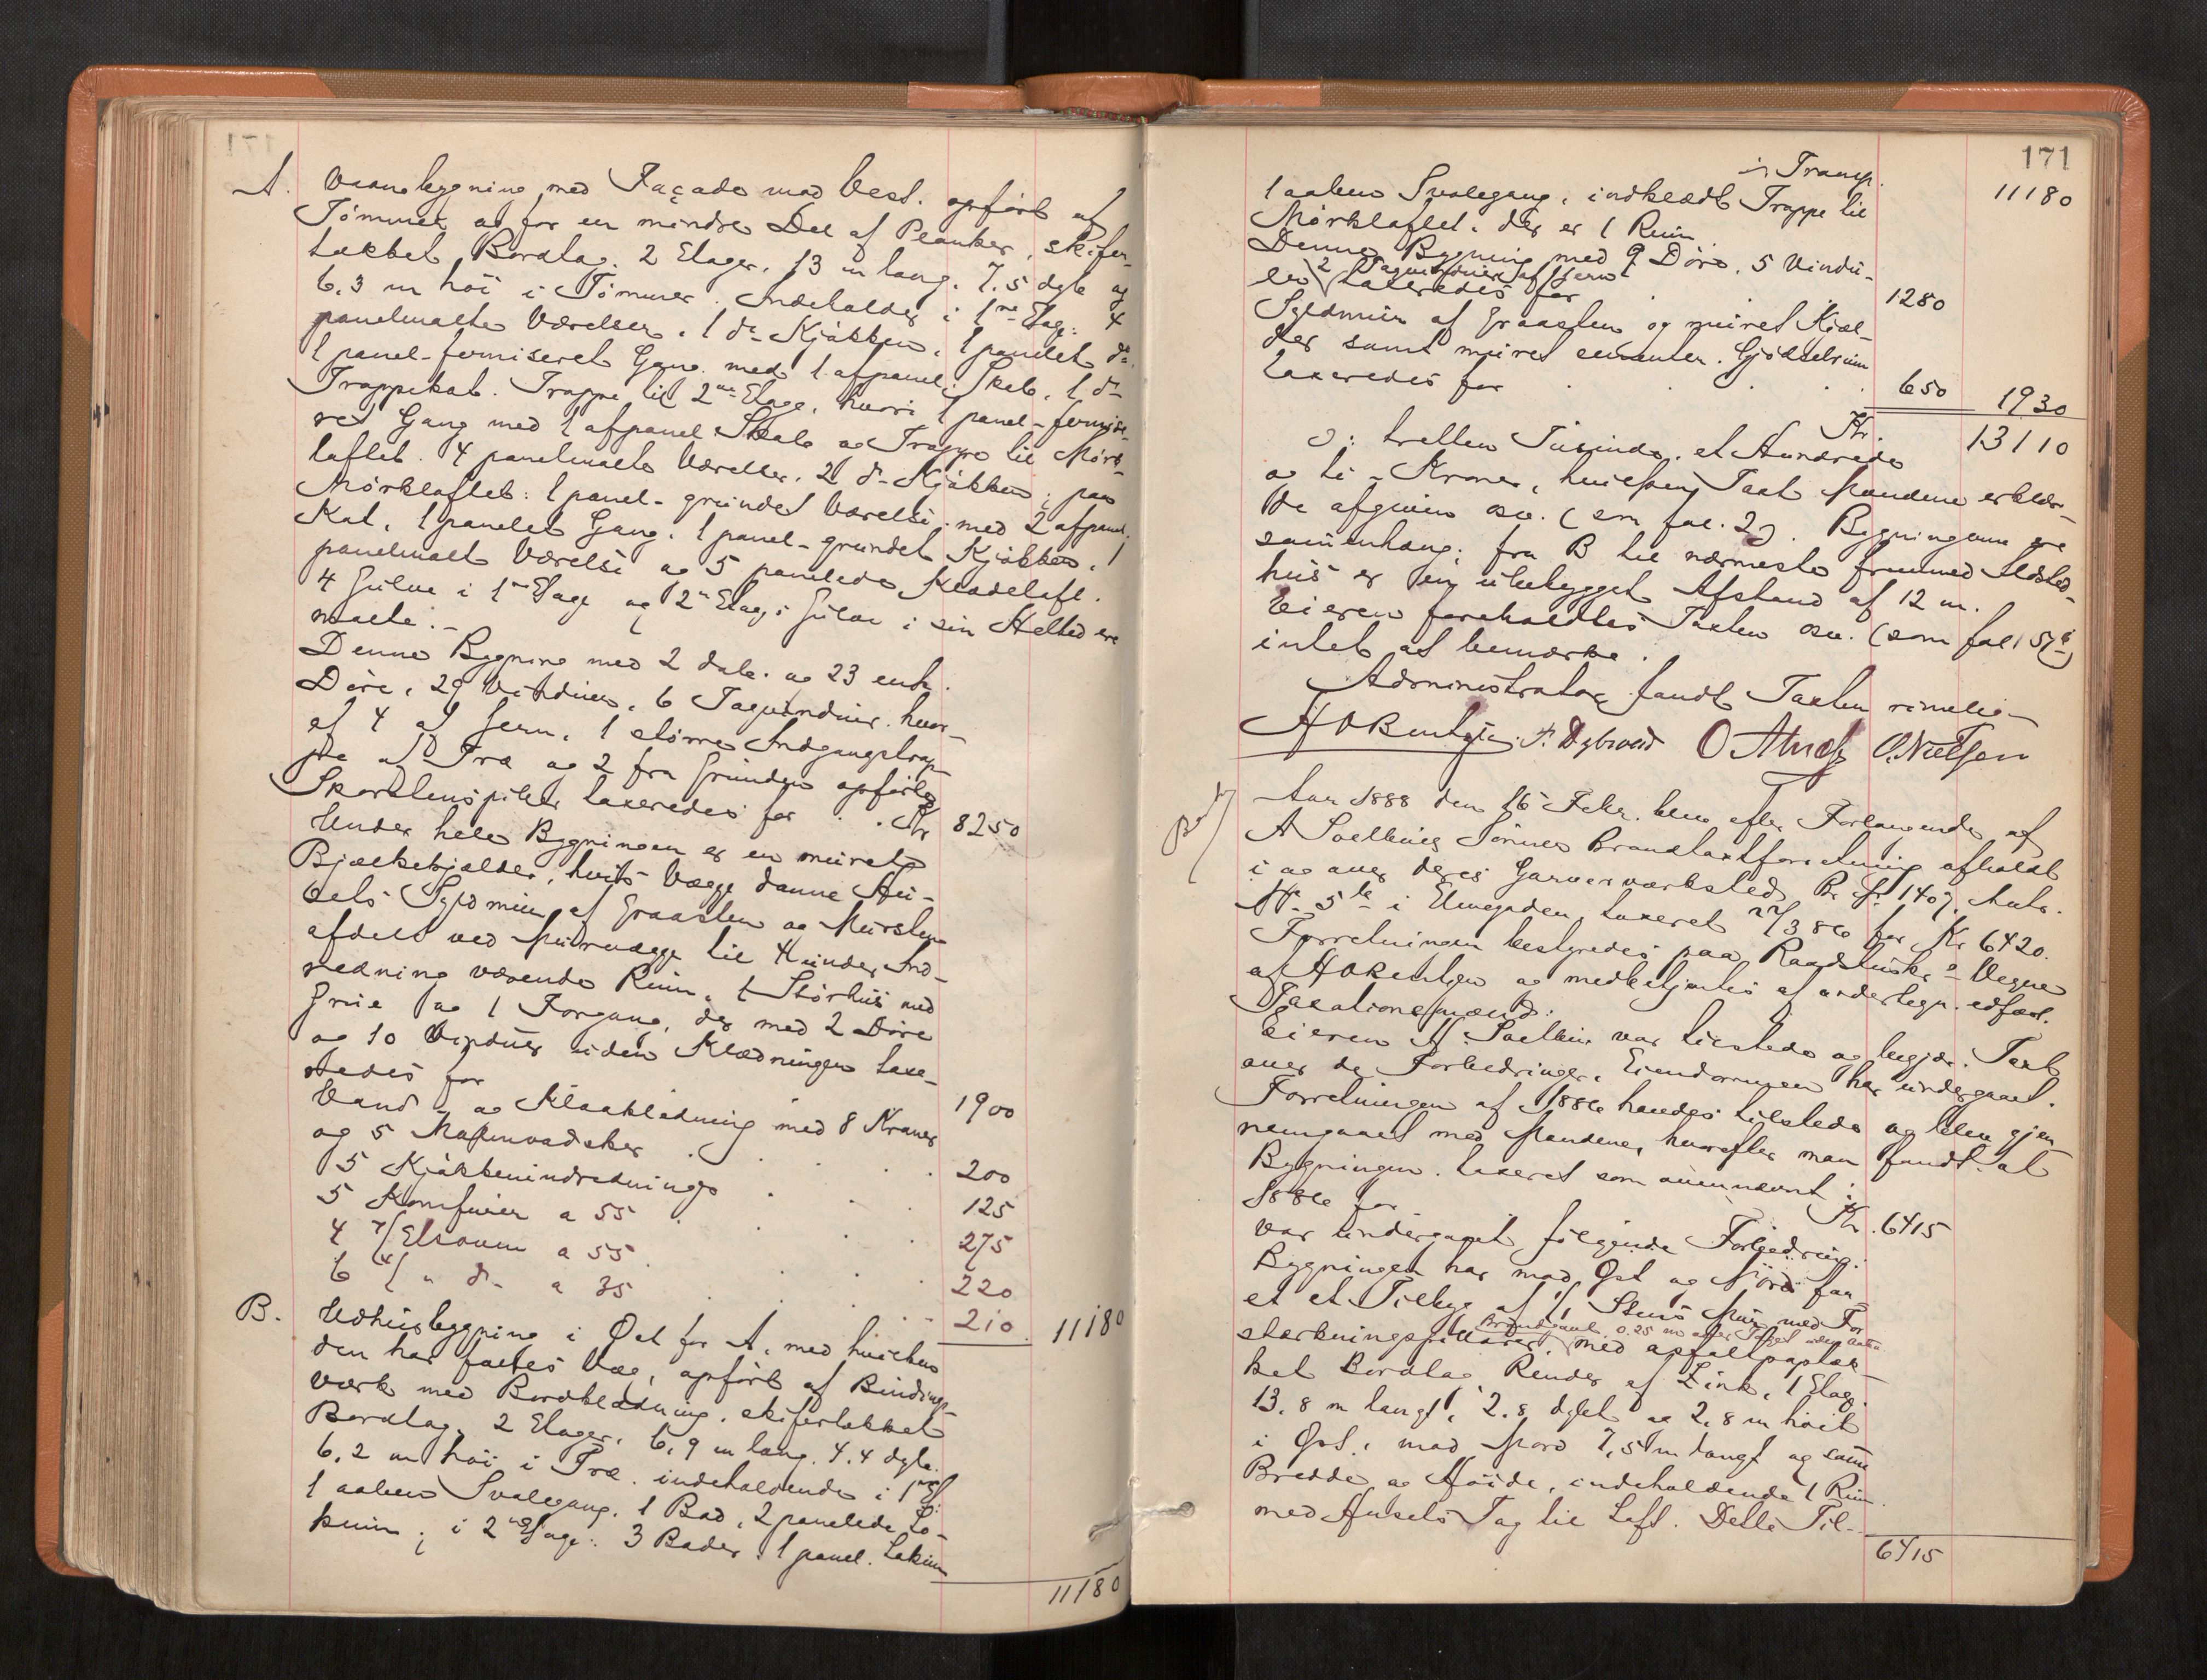 A. Vaanebygning med Façade mod Vest. opført af
Tömmer og for en mindre Del af Planker, skifer-
tækket Bordtag. 2 Etager. 13 m lang. 7.5 dyb og
6.3 m höi i Tömmer. Indeholder i 1ste Etag: 4
panelmalte Værelser. 1 do Kjökken, 1 panelet do
1 panel-ferniseret Gang med 1 afpanel. Skab. 1 do
Trappeskab. Trappe til 2den Etage, hvori 1 panel-fernise-
ret Gang med 1 afpanel Skab og Trappe til Mörk-
loftet. 4 panelmalte Værelser. 2 do Kjökken; paa
Mörkloftet: 1 panel-grundet Værelse med 2 afpanel.
Kot. 1 panelet Gang. 1 panel-grundet Kjökken. 1
panelmalt Værelse og 5 panelede Klædeloft.
4 Gulve i 1ste Etage og 2den Etag: Gulve i sin Helhed ere
malte.-
Denne Bygning med 2 dob. og 23 enk.
Döre, 29 Vinduer, 6 Tagvinduer. hvor-
af 4 af Jern, 1 större Indgangstrap-
pe af Træ og 2 fra Grunden opförte
Skorstenspiber taxeredes for . . Kr 8250
Under hele Bygningen er en muret
Bjælkekjelder, hvis Vægge danne Hu-
sets Syldmur af Graasten og Mursten
afdelt ved Murvægge til 4 under Ind-
redning værende Rum. 1 Störhus med
Grue og 1 Forgang, der med 2 Döre
og 10 Vinduer uden Klædningen taxe-
redes for 1900
Vand- og Kloakledning med 8 Kraner
og 5 vadsker . . . . 200
5 Kjökkenindredninger . . . 125
5 Komfurer a 55 . . . 275
4 Etsovnn a 55 . . . 220
6 " do a 35 . . . 210 11180
B. Udhusbygning i Öst for A. med hvilken
den har fælles Væg, opfört af Bindings-
værk med Bordklædning. skifertækket
Bordtag. 2 Etager. 6,9 m lang. 4.4 dyb.
6.2 m höi i Træ. indeholdende i 1ste Et:
1 aaben Svalegang. 1 Bod. 2 panelede Lo-
kum; i 2den Etage: 3 Boder. 1 panel. Lokum
11180
171
Transp. 11180
1 aaben Svalegang, indklædt Trappe til
Mörkloftet. der er 1 Rum
Denne Bygning med 9 Döre. 5 Vindu-
2 Tagvinduer af Jern
er taxeredes for . . . 1280
Syldmur af Graasten og muret Kjel-
der samt muret cementer. Gjödselrum
taxeredes for . . . . 650 1930
Kr. 13110
o: tretten Tusinde. et Hundrede
og ti - Kroner, hvilken Taxt Mændene erklær-
de afgiven osv. (som fol. 2). Bygningerne ere
sammenhæng. fra B til nærmeste fremmed Ildsted-
hus er en ubebygget Afstand af 12 m.
Eieren foreholdtes Taxten osv. (som fol. 57)
intet at bemærke.
Administrator fandt Taxten rimelig-
A O Bentzen. P. Dybwad O Almaas O. Nielsen
Aar 1888 den 16 Febr. blev efter Forlangende af
A Sælbuigs Sönner Brandtaxtforretning afholdt
i og over deres Garverværksted Br. fr. 1407, Matr.
No 5 i Elvegaden, taxeret 27/3 86 for Kr 6420.
Forretningen bestyredes paa Raadstue s Vegne
af A O Bentzen og medbetjentes af undertegn. edfæst.
Taxationsmænd.
Eieren var tilstede og begjær. Taxt
over de Forbedringer, Eiendommen har undergaaet.
Forretningen af 1886 havdes tilstede og blev gjen-
nemgaaet med Mændene, hvorefter man fandt at
Bygningen. taxeret som ovennævnt i
1886 for Kr. 6415
var undergaaet fölgende Forbedring:
Bygningen har mod Öst og Nord faa-
et et Tilbyg af 1/1 Stens Mur med For-
Brandgavl 0.25 m over Taget
stærkningspillarer, med asfaltpaptæk-
ket Bordtag. Render af Zink, 1 Etag.
13.8 m langt, 2.8 dybt og 2.8 m höit
i Öst, mod Nord 7,5 m langt og samme
Bredde og Höide, indeholdende 1 Rum
med Husets Tag til Loft. Dette Til-
6415